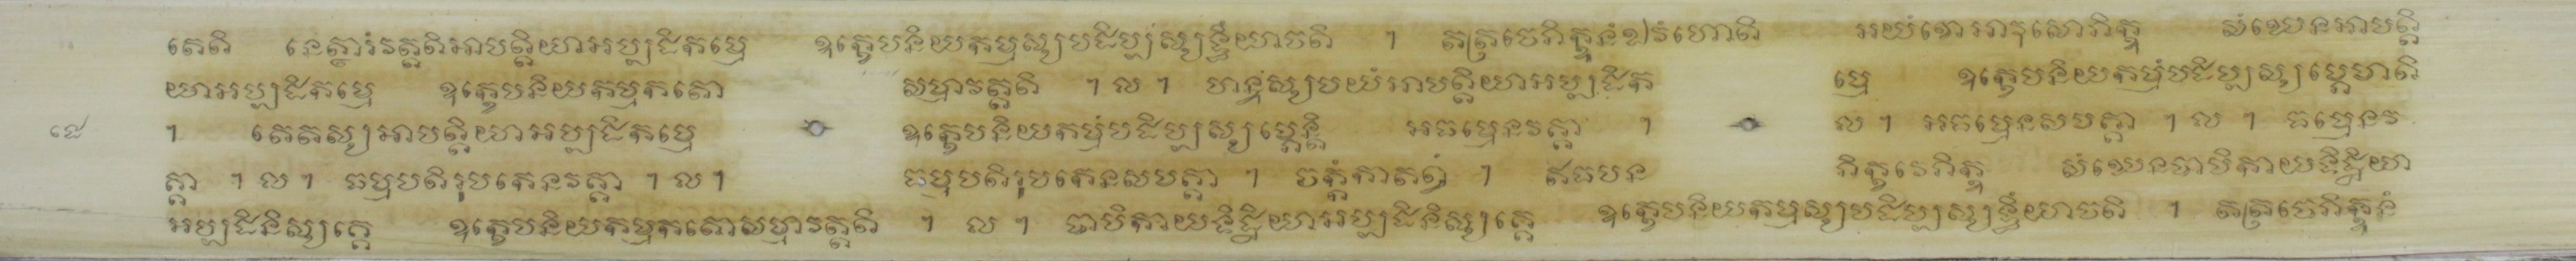 តេតិ នេត្ថារំវត្តតិអាបត្តិយាអប្បដិកម្មេ ឧក្ខេបនិយកម្មស្សបដិប្បស្សទ្ធឹយាចតិ ។ តត្រចេភិក្ខូនំឯវំហោតិ អយំខោអាវុសោភិក្ខុ សំឃេនអាបត្តិ
យាអប្បដិកម្មេ ឧក្ខេបនិយកម្មកតោ សម្មាវត្តតិ ។ ល ។ ហន្ទស្សមយំអាបត្តិយាអប្បដិក ម្មេ ឧក្ខេបនិយកម្មំបដិប្បស្សម្ភេមាតិ
។ តេតស្សអាបត្តិយាអប្បដិកម្មេ ឧក្ខេបនិយកម្មំបដិប្បស្សម្ភេន្តិ អធម្មេនវគ្គា ។ ល ។ អធម្មេនសមគ្គា ។ ល ។ ធម្មេនវ
គ្គា ។ ល ។ ធម្មបតិរូបកេនវគ្គា ។ ល ។ ធម្មបតិរូបកេនសមគ្គា ។ ចក្កំកាតព្វំ ។ ឥធបន ភិក្ខវេភិក្ខុ សំឃេនបាបិកាយទិដ្ឋិយា
អប្បដិនិស្សគ្គេ ឧក្ខេបនិយកម្មកតោសម្មាវត្តតិ ។ ល ។ បាបិកាយទិដ្ឋិយាអប្បដិនិស្សគ្គេ ឧក្ខេបនិយកម្មស្សបដិប្បស្សទ្ធឹយាចតិ ។ តត្រចេភិក្ខូនំ